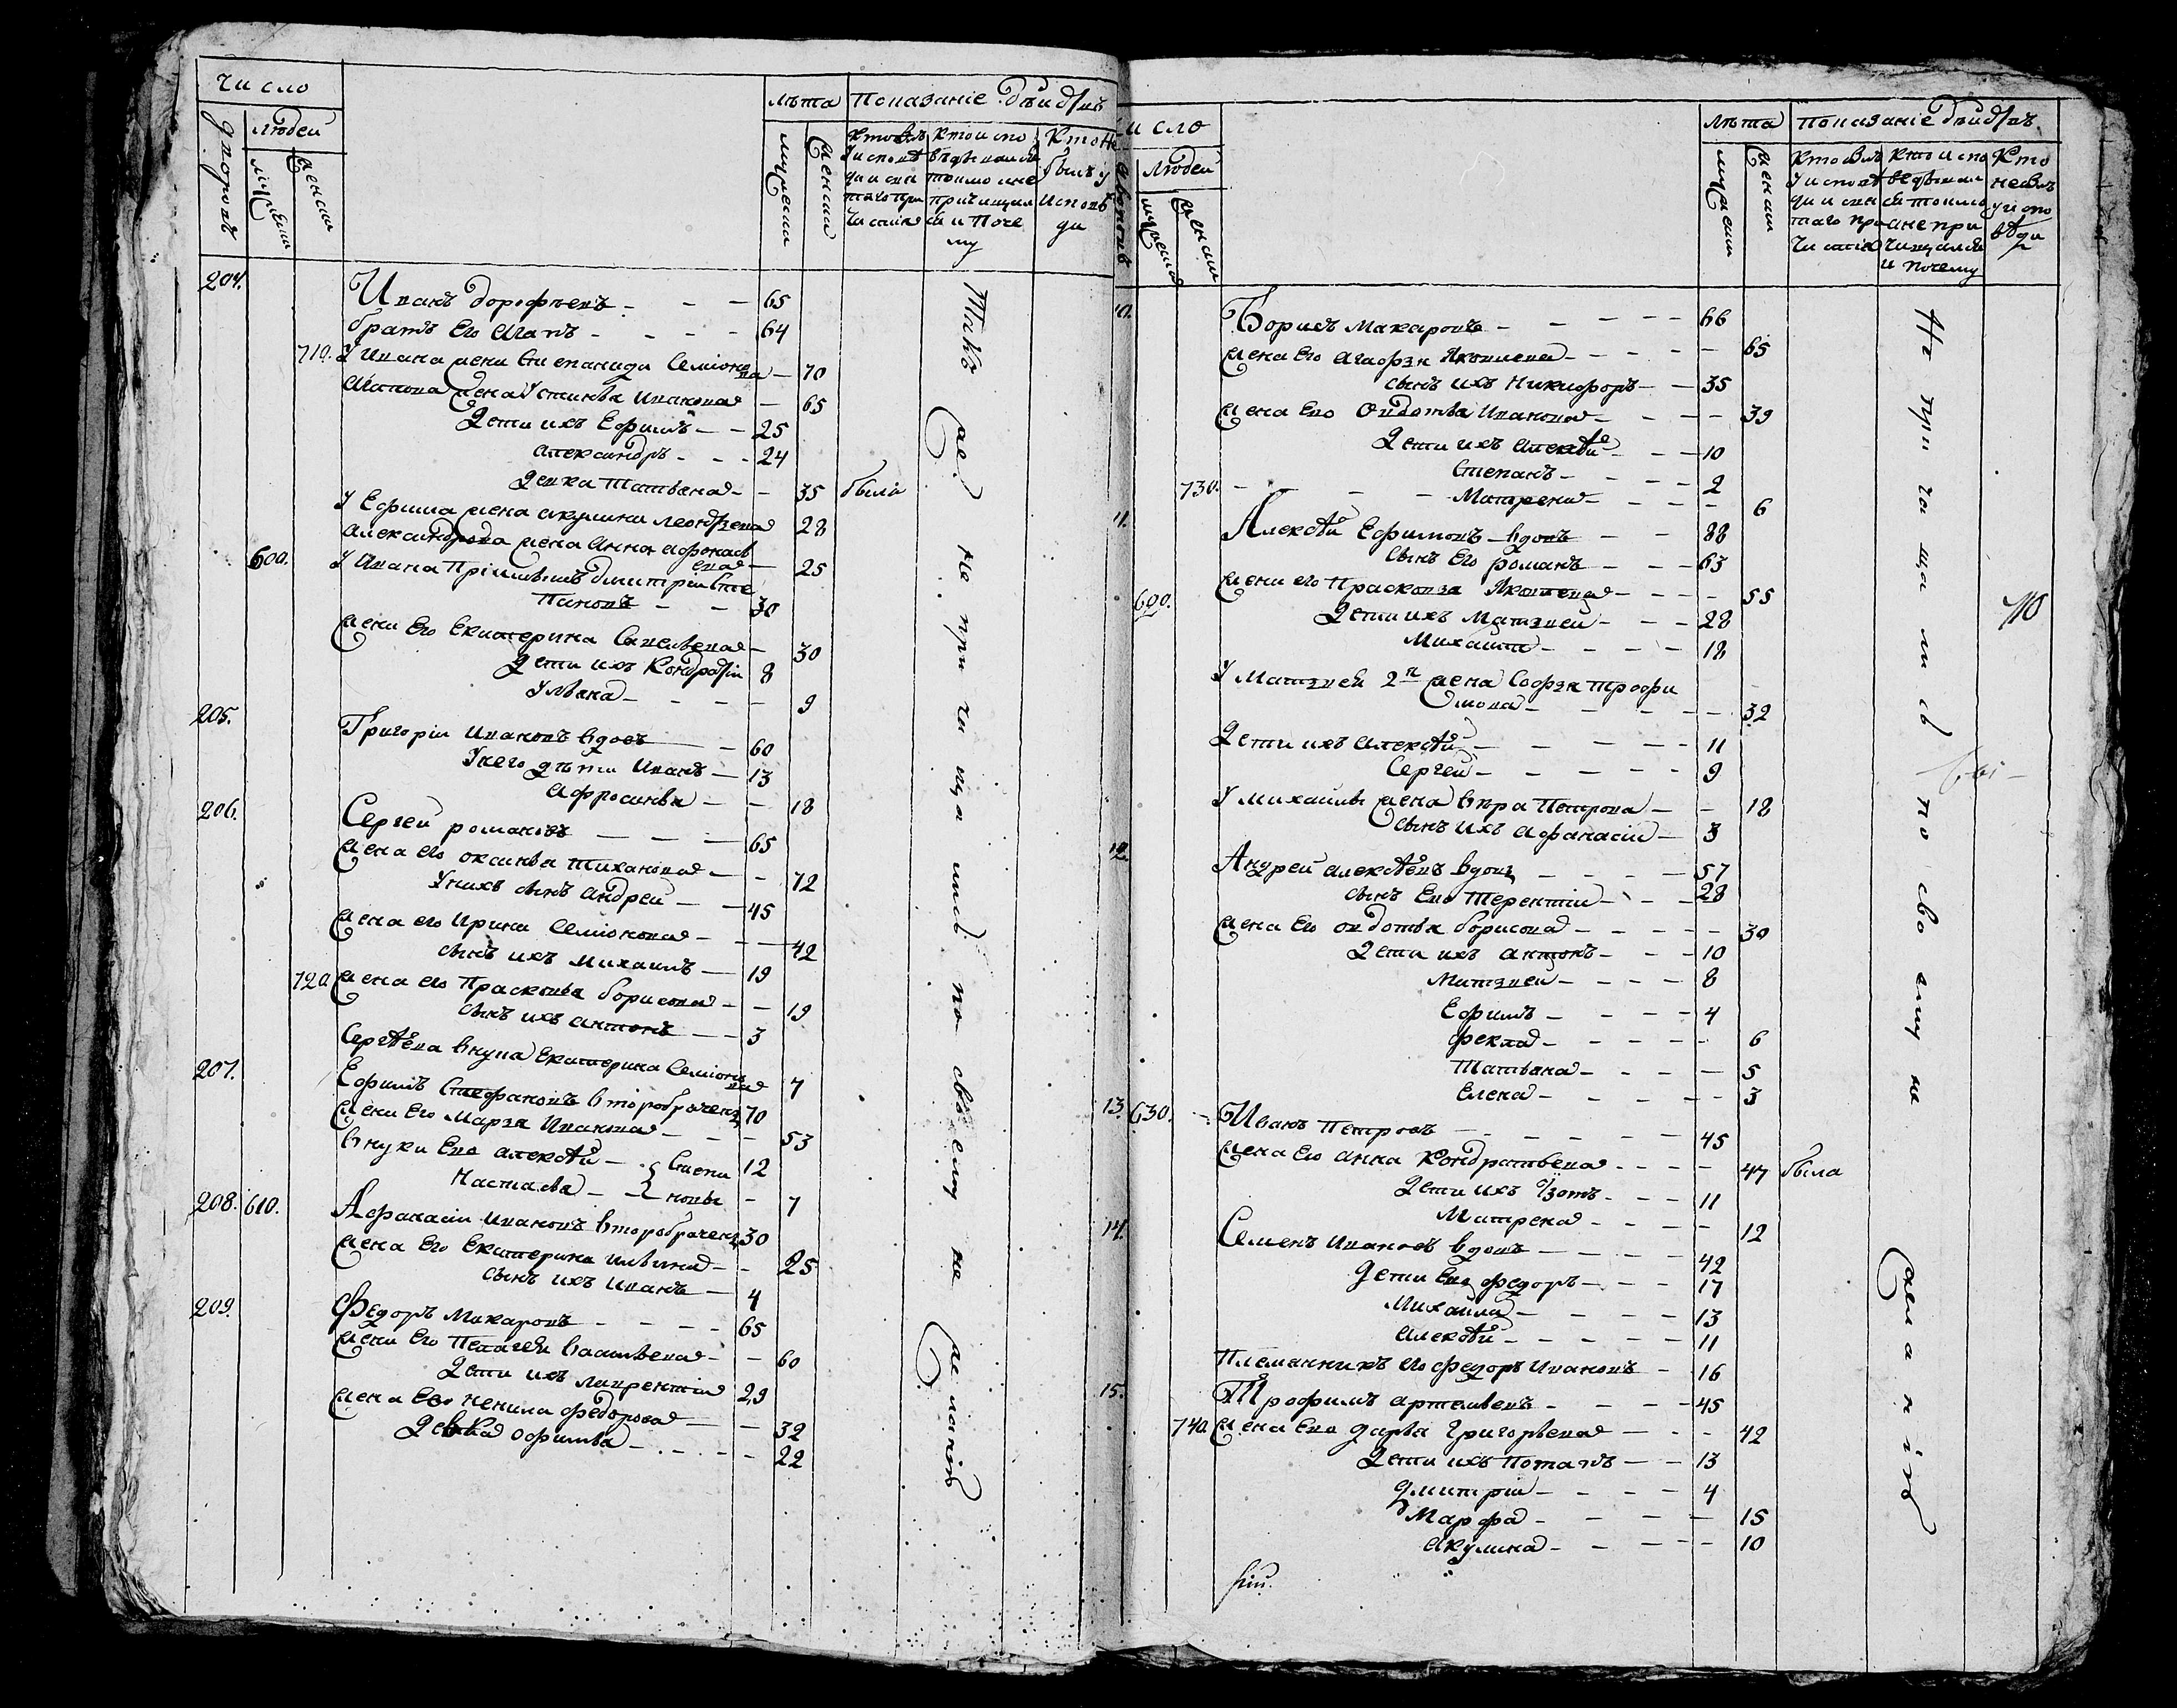 число
людей
дворовъ
мужеска
женска
лѣта
мужески
женски
Показаніе дѣйствъ
Кто былъ
у исповѣ
ди и свя
таго при
частия
Кто испо
ведывался
токмо а не
причищал
ся и поче
му
Кто не
былъ у
исповѣ
ди
204.
Иванъ дорофѣевъ - - - 65
братъ Его Агапъ - - - - 64
710. У Ивана жена Степанида Семіоно
ва - 70
Агапова жена Устинья Иванова - 65
Дети ихъ Ефимъ - - 25
Александръ - - - 24
Девка Татьяна - - 35 была
У Ефима жена Акулина 28
Александрова жена Анна Афонась
ева - 25
600. У Ивана Приимышъ Дмитрій Сте
пановъ - - 30
жена Его Екатерина Савельева - 30
Дети ихъ Кондратій 8
Ульяна - - - - 9
205.
Григоріи Ивановъ вдовъ - 60
У него дѣти Иванъ - 13
Афросинья - - 18
206.
Сергеи романовъ - - - 65
жена его оксинья Тиханова - - 72
У нихъ сынъ Андреи - - 45
жена его Ирина Семионова - - - 42
сынъ ихъ Михаилъ - 19
720. жена его Прасковья борисова - - 19
сынъ ихъ Антонъ - - 3
Сергѣева внука Екатерина Семіоно
ва 7
207.
Ефимъ Стефановъ второбраченъ 70
жена Его Марья Иванова - - - 53
внуки Его Алексѣй - Степа 12
Настасья - - новы - 7
208. 610. Афанасіи Ивановъ второбраченъ 30
жена Его Екатерина Ильина - - 25
сынъ ихъ Иванъ - 4
209.
Федоръ Макаровъ - - - - 65
жена Его Пелагея Васильева - - 60
Дети ихъ Лаврентіи 29
жена Его Ненила Федорова - - 32
Девка Офимья - - - - 22
Такъ же не причащались по своему не желанію
число
дворовъ
людей
мужеска
женски
лѣта
мужески
женски
показаніе дѣйствъ
Кто былъ
у исповѣ
ди и свя
таго при
частия
Кто испо
ведывал
ся токмо
а не при
чищался
и почему
Кто
не былъ
у испо
вѣди
10.
Борисъ Макаровъ - - - - - 66
жена Его Агафья Яковлева - - - - - 65
сынъ ихъ Никифоръ - - 35
жена Его Овдотья Иванова - - - - 39
Дети ихъ Алексѣй - - - 10
Степанъ - - - - 2
730. - - - - Матрена - - - - 6
11.
Алексѣй Ефимовъ - вдовъ - - 88
сынъ Его романъ - - - 63
690. жена его Прасковья Яковлева - - - - 55
Дети ихъ Матвеи - - - 28
Михаила - - - - 18
У Матвея 2я жена Софья Трофи
мова - - - - - - 32
Дети ихъ Алексѣй - - - - - 11
Сергей - - - - - 9
У Михаилы жена вѣра Петрова - - 18
сынъ ихъ Афанасіи - 3
12.
Андреи алексѣевъ вдовъ - - - - 57
сынъ Его Терентіи - - - 28
жена Его овдотья борисова - - - - - 30
Дети ихъ антонъ - - - 10
Матвеи - - - - 8
Ефимъ - - - - 4
Фекла - - - - - 6
Татьяна - - - - 5
Елена - - - - - 3
13. 630.
Иванъ Петровъ - - - - - 45
жена Его анна Кондратьева - - - - 47 была
Дети ихъ Изотъ - - - 11
Матрена - - - - 12
14.
Семенъ Ивановъ вдовъ - - - - 42
дети Его Федоръ - - - 17
Михаила - - - - 13
Алексѣй - - - - - 11
Племянникъ его Федоръ Ивановъ - 16
15.
Трофимъ артемьевъ - - - - 45
740. жена Его дарья Григорьева - - - 42
Дети ихъ Потапъ - - 13
дмитріи - - - - 4
Марфа - - - - - 15
Акулина - - - - - 10
Не причащались по своему не желанію